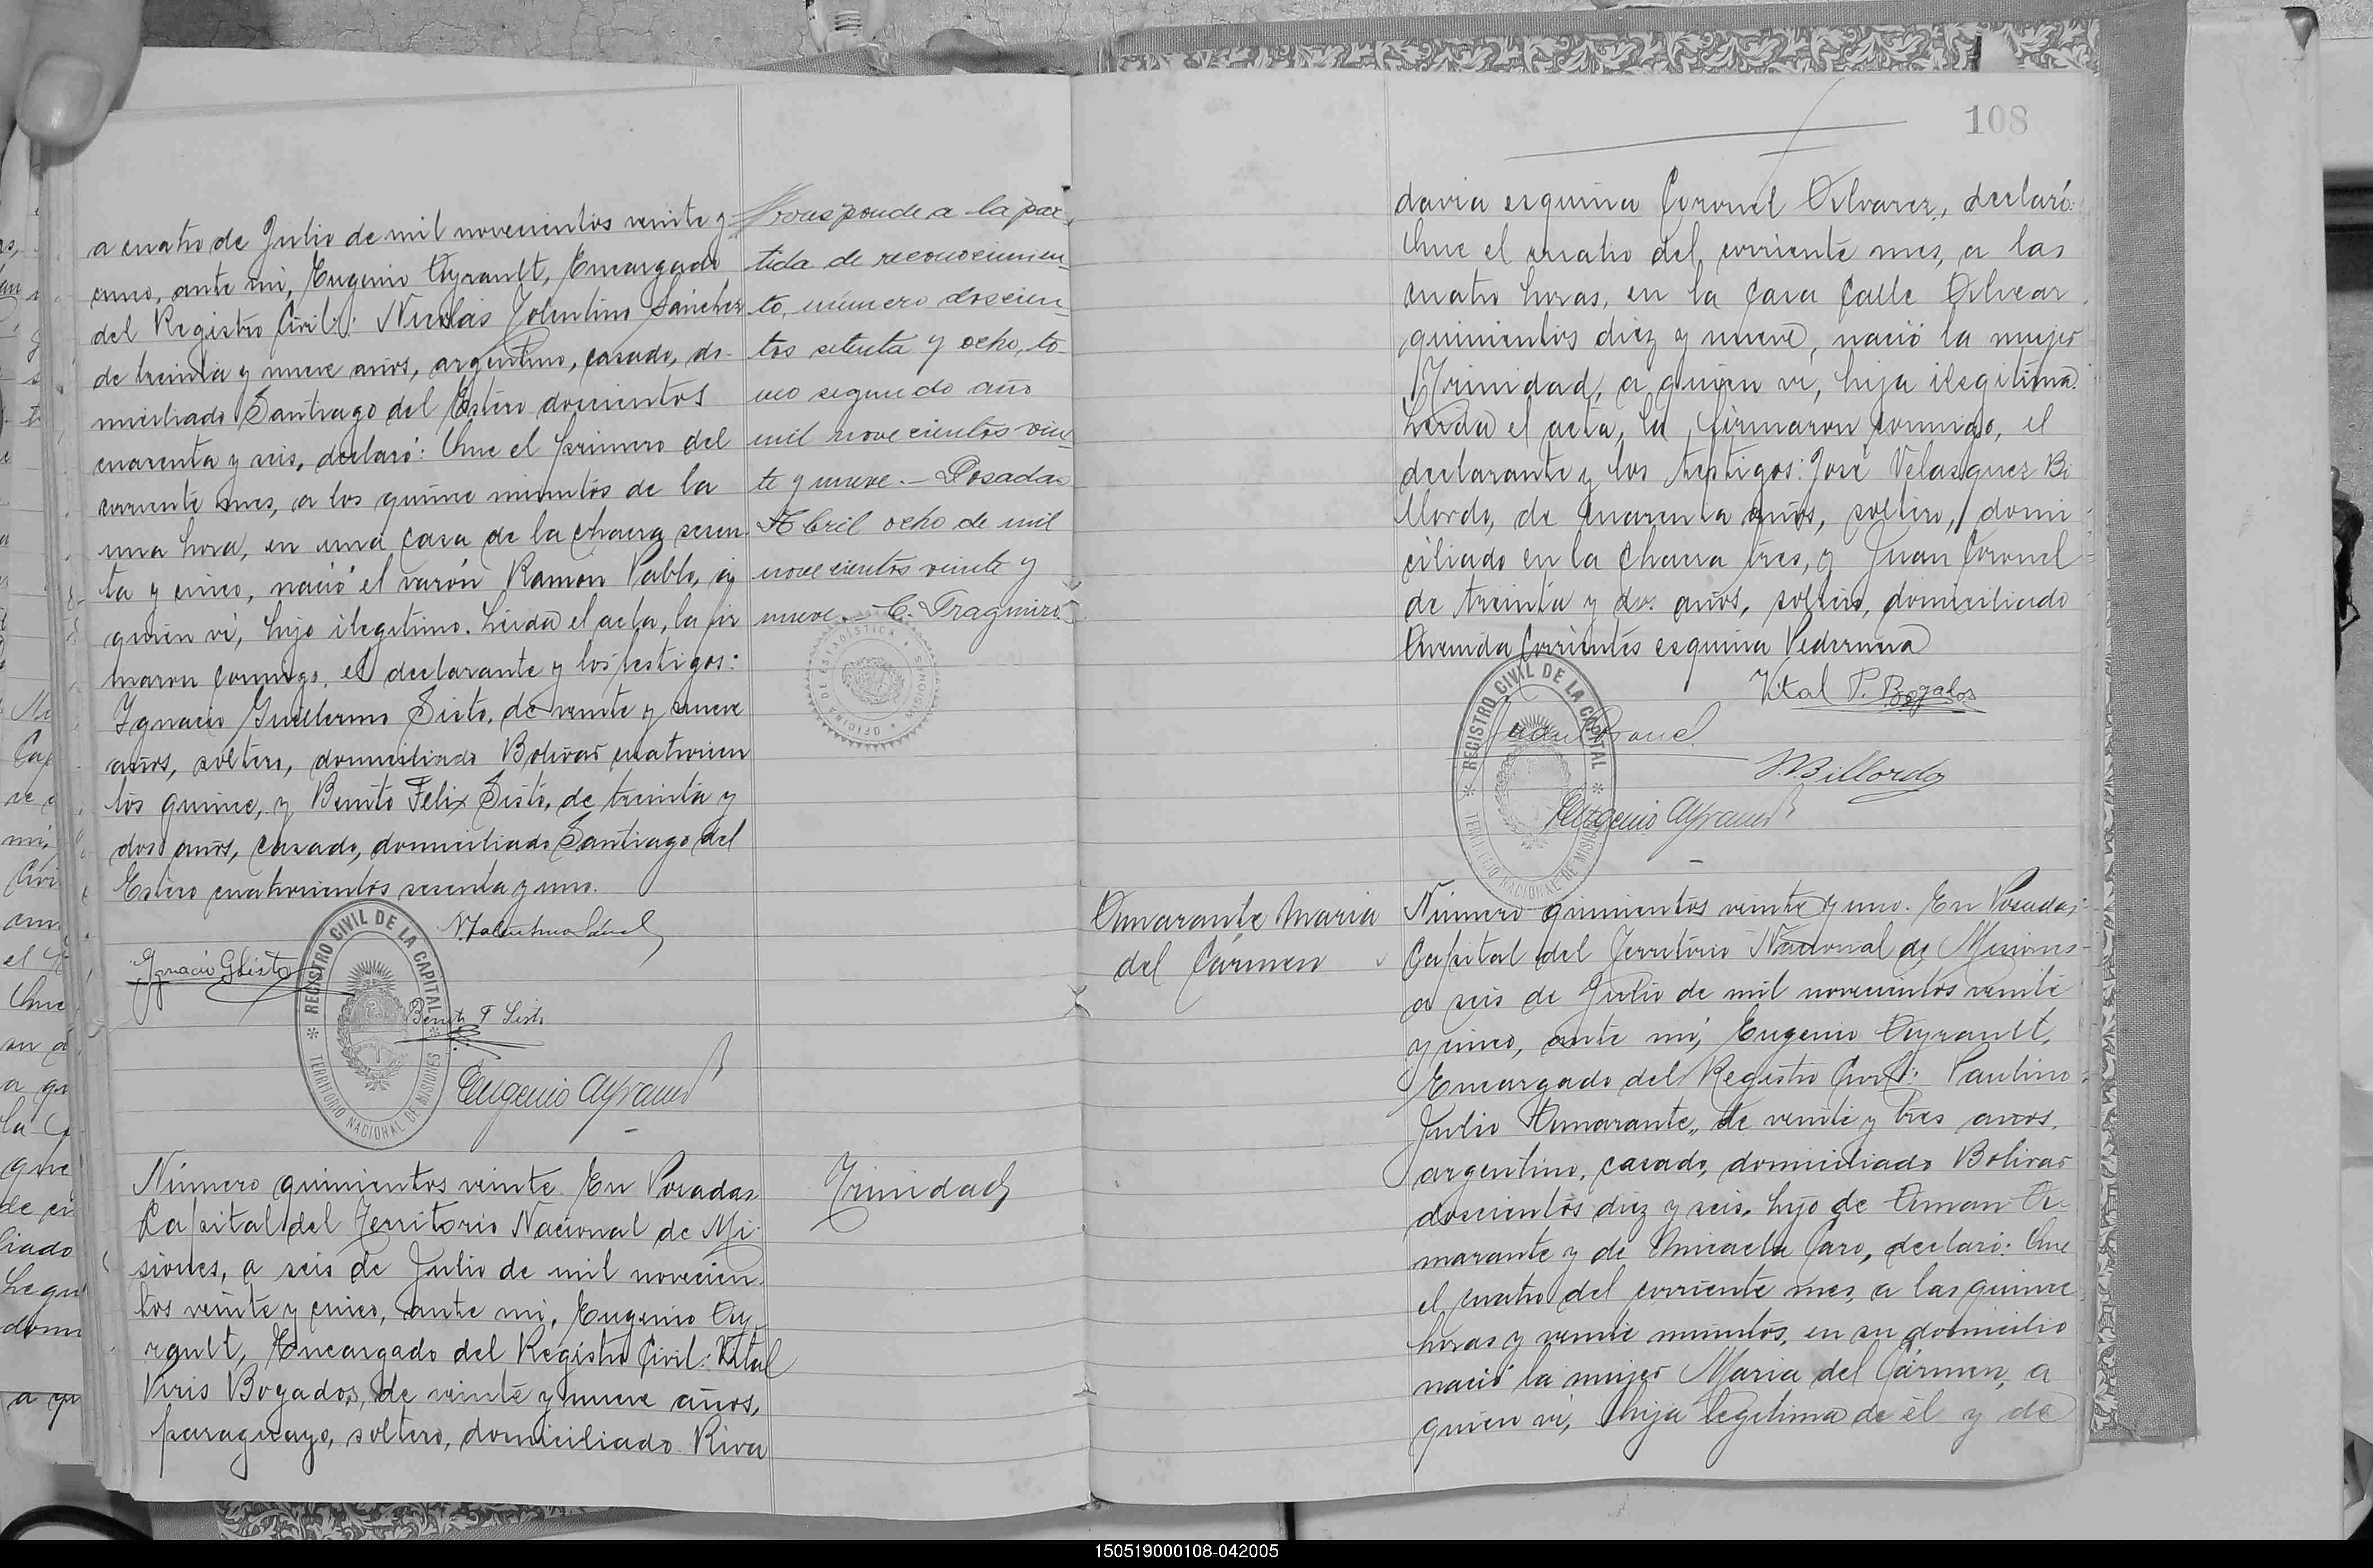 a cuatro de Julio de mil novecientos veinte y
cinco, ante mi, Eugenio Ayrault, Encargado
del Registro Civil: Nicolás Tolentino Sánchez
de treinta y nueve años, argentino, casado, do-
miciliado Santiago del Estero doscientos
cuarenta y seis, declaró: Que el primero del
corriente mes, a los quince minutos de la
una hora, en una casa de la chacra sesen
ta y cinco, nació el varón Ramon Pablo, a
quien vi, hijo ilegitimo. Leida el acta, la fir
maron conmigo, el declarante y los testigos:
Ignacio Guillermo Sisto, de veinte y nueve
años, soltero, domiciliado Bolivar cuatrocien
tos quince, y Benito Felix Sisto, de treinta y
dos años, casado, domiciliado Santiago del
Estero cuatrocientos sesenta y uno.
Ignacio G Sisto
Benito F Sisto
Eugenio Ayrault
REGISTRO CIVIL DE LA CAPITAL
TERRITORIO NACIONAL DE MISIONES
rresponde a la par-
tida de reconocimien-
to, número doscien-
tos setenta y ocho, to-
mo segundo año
mil novecientos vein-
te y nueve.- Posadas
Abril ocho de mil
novecientos veinte y
nueve.-
OFICINA DE ESTADISTICA * MISIONES
Número quinientos veinte. En Posadas
Capital del Territorio Nacional de Mi-
siones, a seis de Julio de mil novecien-
tos veinte y cinco, ante mi, Eugenio Ay-
rault, Encargado del Registro Civil: Vital
Piris Bogados, de veinte y nueve años,
paraguayo, soltero, domiciliado Riva
Trinidad
108
davia esquina Coronel Alvarez, declaró:
Que el cuatro del corriente mes, a las
cuatro horas, en la casa calle Alvear
quinientos diez y nueve, nació la mujer
Trinidad, a quien vi, hija ilegitima.
Leida el acta, la firmaron conmigo, el
declarante y los testigos: José Velasquez Bi
llordo, de cuarenta años, soltero, domi
ciliado en la chacra tres, y Juan Coronel
de treinta y dos años, soltero, domiciliado
Avenida Corrientes esquina Pedernera
Vital P. Bogados
Juan Coronel
J. V. Billordo
Eugenio Ayrault
REGISTRO CIVIL DE LA CAPITAL
TERRITORIO NACIONAL DE MISIONES
Amarante Maria
del Cármen
Número quinientos veinte y uno. En Posadas,
Capital del Territorio Nacional de Misiones
a seis de Julio de mil novecientos veinte
y cinco, ante mi, Eugenio Ayrault,
Encargado del Registro Civil: Paulino
Julio Amarante, de veinte y tres años,
argentino, casado, domiciliado Bolivar
doscientos diez y seis, hijo de Aman A-
marante y de Micaela Caro, declaró: Que
el cuatro del corriente mes, a las quince
horas y veinte minutos, en su domicilio
nació la mujer Maria del Cármen, a
quien vi, hija legitima de él y de
150519000108-042005